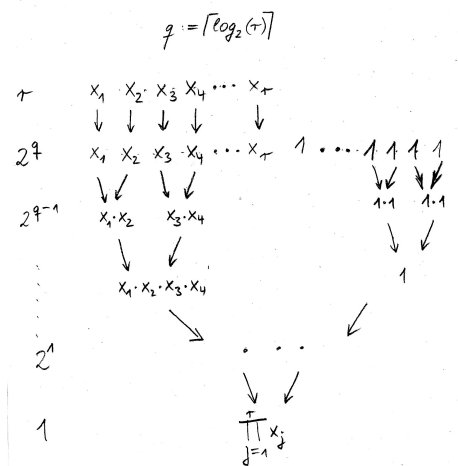 q := ⌈log₂(r)⌉
r x₁ x₂ x₃ x₄ ... x_r
2^q x₁ x₂ x₃ x₄ ... x_r 1 .... 1 1 1 1
2^{q-1} x₁·x₂ x₃·x₄ 1·1 1·1
x₁·x₂·x₃·x₄ 1
2¹ . . .
1 ∏_{j=1}^{r} x_j